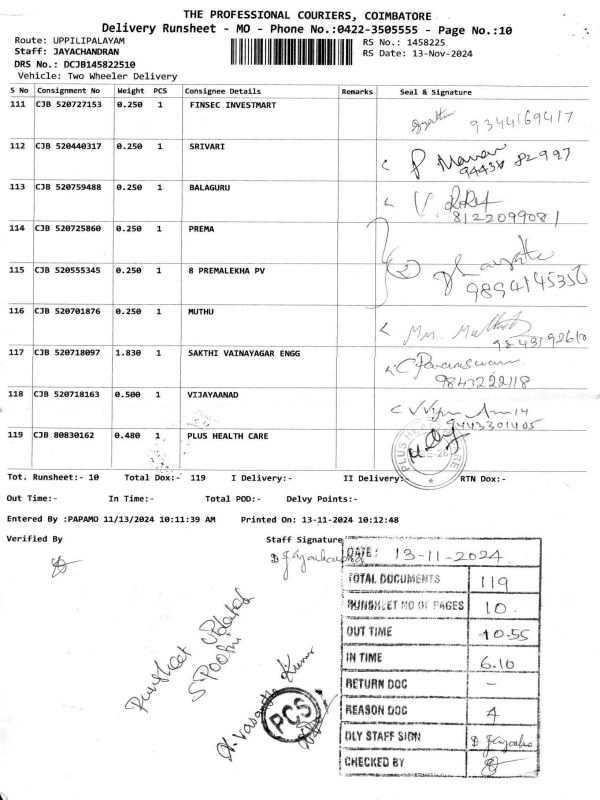 THE PROFESSIONAL COURIERS, COIMBATORE
Delivery Runsheet - MO - Phone No.:0422-3505555 - Page No.:10
Route: UPPILIPALAYAM
Staff: JAYACHANDRAN
DRS No.: DCJB145822510
Vehicle: Two Wheeler Delivery
RS No.: 1458225
RS Date: 13-Nov-2024
S No Consignment No Weight PCS Consignee Details Remarks Seal & Signature
111 CJB 520727153 0.250 1 FINSEC INVESTMART
9344169417
112 CJB 520440317 0.250 1 SRIVARI
94438 82997
113 CJB 520759488 0.250 1 BALAGURU
8122099081
114 CJB 520725860 0.250 1 PREMA
115 CJB 520555345 0.250 1 8 PREMALEKHA PV
2
9894145350
116 CJB 520701876 0.250 1 MUTHU
9843192610
117 CJB 520718097 1.830 1 SAKTHI VAINAYAGAR ENGG
9843222118
118 CJB 520718163 0.500 1 VIJAYAANAD
9443301405
119 CJB 80830162 0.480 1 PLUS HEALTH CARE
Tot. Runsheet:- 10 Total Dox:- 119 I Delivery:- II Delivery:- RTN Dox:-
Out Time:- In Time:- Total POD:- Delvy Points:-
Entered By :PAPAMO 11/13/2024 10:11:39 AM Printed On: 13-11-2024 10:12:48
Verified By Staff Signature
DATE: 13-11-2024
TOTAL DOCUMENTS 119
RUNSHEET NO OF PAGES 10.
OUT TIME 10.55
IN TIME 6.10
RETURN DOC -
REASON DOC 4
DLY STAFF SIGN
CHECKED BY
Runsheet Updated
S Poorni
PCS